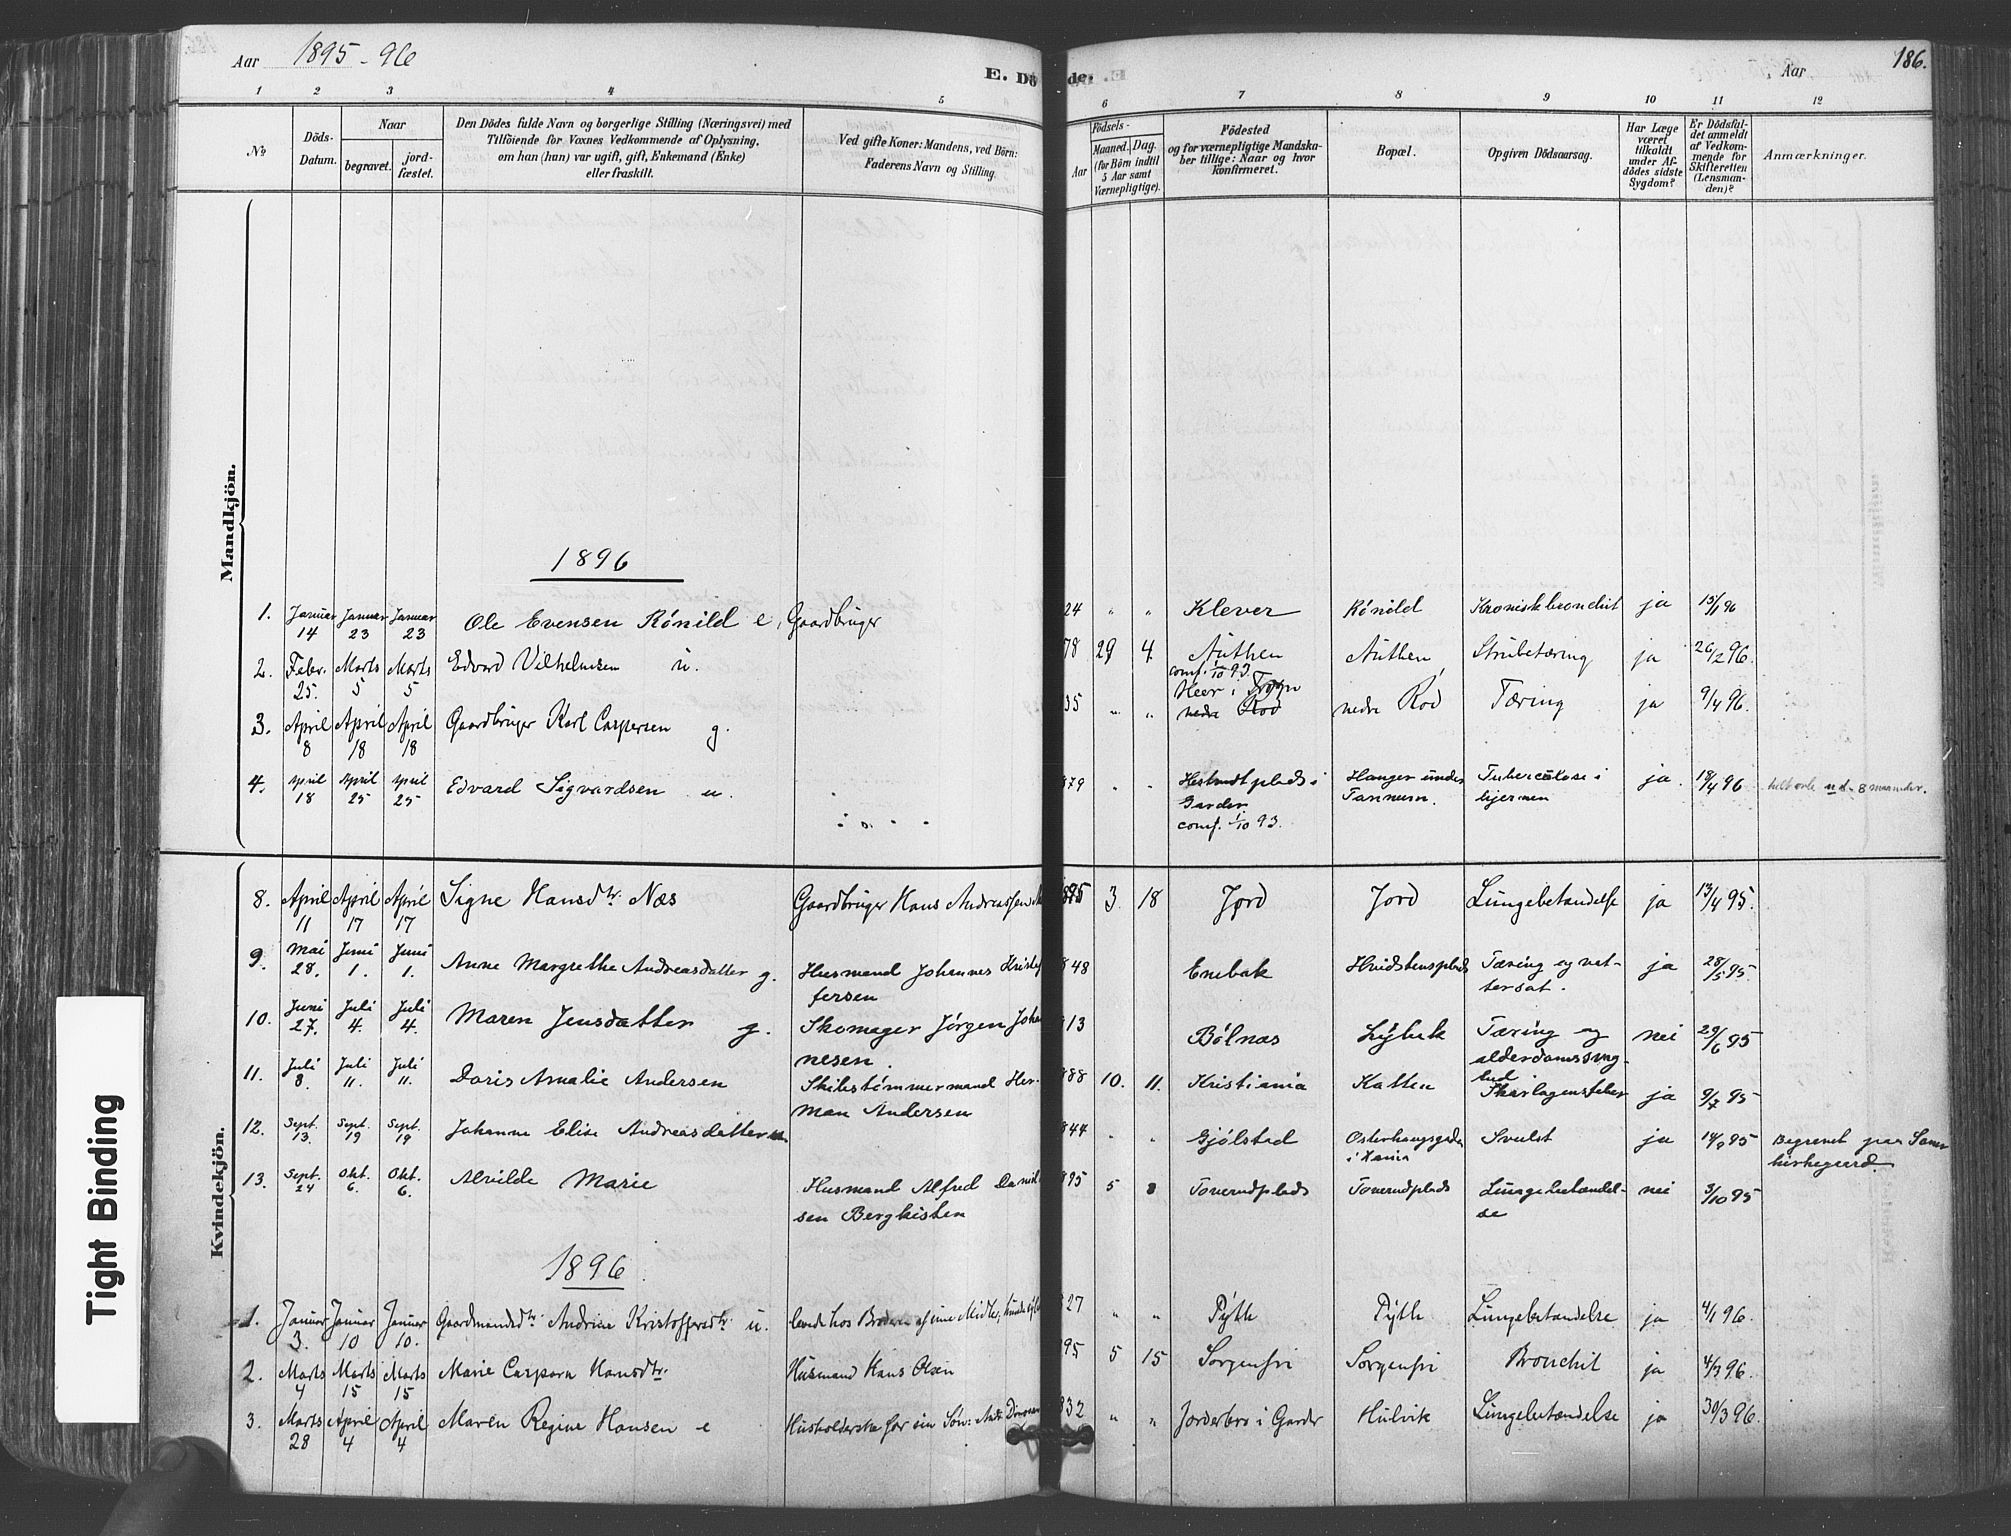 Aar 1895-96
E. Dö
de.
Aar
186.
1 2 3 4 5 6 7 8 9 10 11 12
No
Döds-Datum.
Naar
begravet.
jord-fæstet.
Den Dödes fulde Navn og borgerlige Stilling (Næringsvei) med
Tilföiende for Voxnes Vedkommende af Oplysning,
om han (hun) var ugift, gift, Enkemand (Enke)
eller fraskilt.
Ved gifte Koner: Mandens, ved Börn:
Faderens Navn og Stilling.
Födsels-
Aar
Maaned. Dag.
(for Börn indtil
5 Aar samt
Værnepligtige).
Födested
og for værnepligtige Mandska-
ber tillige: Naar og hvor
konfirmeret.
Bopæl.
Opgiven Dödsaarsag.
Har Læge
været
tilkaldt
under Af-
dödes sidste
Sygdom?
Er Dödsfal-
det anmeldt
af Vedkom-
mende for
Skifteretten
(Lensman-
den)?
Anmærkninger.
Mandkjön.
1896
1. Januar 14 Januar 23 Januar 23 Ole Evensen Rónild e, Gaardbruger 24 " " Klever Rónild Kroniskbronchit ja 15/1 96
2. Febr. 25. Marts 5 Marts 5 Edvard Vilhelmsen u. 78 29 4 Authen conf. 1/10 93 Authen Strubetæring ja 26/2 96.
3. April 8 April 18 April 18 Gaardbruger Karl Caspersen g. 35 " " Heer i nedre Rod nedre Rod Tæring ja 9/4 96.
4. April 18 April 25 April 25 Edvard Sigvardsen u. 879 " " plads i Garder conf. 1/10 93. Hanger under Tannum. Tuberculose i hjernen ja. 18/4 96 8 maaneder.
Kvindekjön.
8. April 11 April 17 April 17 Signe Hansdtr. Næs Gaardbruger Hans Andreassen 1895 3 18 Jord Jord Lungebetændelse ja 13/4 95.
9. Mai 28. Juni 1. Juni 1. Anne Margrethe Andreasdatter g. Husmand Johannes Kristoffersen 848 Enebak Hvidstensplads Tæring og vattersot. ja 28/5 95.
10. Juni 27. Juli 4. Juli 4. Maren Jensdatter g. Skomager Jørgen Johannesen. 13 Bølnæs Lybæk Tæring og alderdomssvaghed nei 29/6 95
11. Juli 8. Juli 11. Juli 11. Doris Amalie Andersen Skibstømmermand Herman Andersen 888 10. 11. Kristiania Katten Skarlagensfeber ja 9/7 95
12. Sept. 13. Sept. 19 Sept. 19 Johanne Elise Andreasdatter 844 " " Gjølstad Osterhausgaden i Xania Svulst ja 14/9 95 Begravet paa Søner kirkegaard
13. Sept. 24 Okt. 6. Okt. 6. Alvilde Marie Husmand Alfred Danielsen Bergkisten 895 5 8 Toverudplads Toverudplads Lungebetændelse nei 3/10 95
1896
1. Januar 3. Januar 10 Januar 10. Gaardmandsdtr. Andrine Kristoffersdtr. u. 827 " " Pýtt Pýtt Lungebetændelse ja 4/1 96.
2. Marts 4 Marts 15 Marts 15 Marie Caspara Hansdtr. Husmand Hans Olsen 95 5 15 Sorgenfri Sorgenfri Bronchit ja 4/3 96.
3. Marts 28 April 4 April 4 Maren Regine Hansen e Husholderske for sin Søn: 832 " " Jorderbro i Garder Hulvik Lungebetændelse ja 30/3 96.
Tight Binding